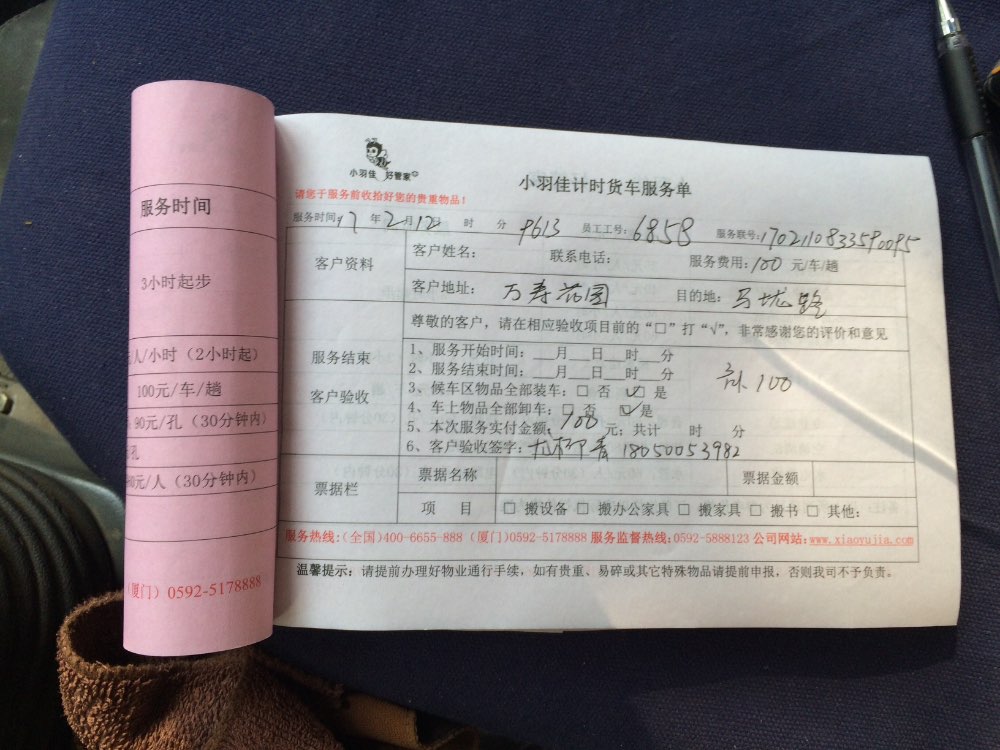 服务时间
3小时起步
人/小时（2小时起）
100元/车/趟
90元/孔（30分钟内）
孔
元/人（30分钟内）
（厦门）0592-5178888
小羽佳 好管家
小羽佳计时货车服务单
请您于服务前收拾好您的贵重物品！
服务时间：17年2月12日 时 分 9613 员工工号：6858 服务联号：1702110833590095
客户资料
客户姓名： 联系电话： 服务费用：100 元/车/趟
客户地址：万寿花园 目的地：马垅路
尊敬的客户，请在相应验收项目前的“□”打“√”，非常感谢您的评价和意见
服务结束
客户验收
1、服务开始时间：___月___日___时___分
2、服务结束时间：___月___日___时___分
3、候车区物品全部装车：□ 否 ☑ 是
4、车上物品全部卸车：□ 否 ☑ 是
5、本次服务实付金额：100 元；共计 时 分
6、客户验收签字： 18050053982
100
票据栏
票据名称 票据金额
项 目 □ 搬设备 □ 搬办公家具 □ 搬家具 □ 搬书 □ 其他：
服务热线：（全国）400-6655-888（厦门）0592-5178888 服务监督热线：0592-5888123 公司网站：www.xiaoyujia.com
温馨提示：请提前办理好物业通行手续，如有贵重、易碎或其它特殊物品请提前申报，否则我司不予负责。